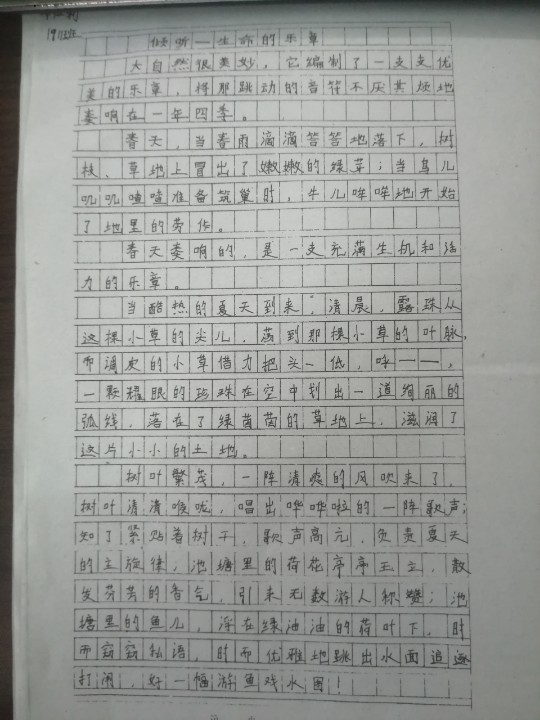 倾听—生命的乐章
大自然很美妙，它编制了一支支优
美的乐章，将那跳动的音符不厌其烦地
奏响在一年四季。
春天，当春雨滴滴答答地落下，树
枝、草地上冒出了嫩嫩的绿芽；当鸟儿
叽叽喳喳准备筑巢时，牛儿哞哞地开始
了地里的劳作。
春天奏响的，是一支充满生机和活
力的乐章。
当酷热的夏天到来，清晨，露珠从
这棵小草的尖儿，荡到那棵小草的叶脉，
而调皮的小草借力把头一低，呼——，
一颗耀眼的珍珠在空中划出一道绚丽的
弧线，落在了绿茵茵的草地上，滋润了
这片小小的土地。
树叶繁茂，一阵清爽的风吹来了，
树叶清清喉咙，唱出哗哗啦的一阵歌声；
知了紧贴着树干，歌声高亢，负责夏天
的主旋律；池塘里的荷花亭亭玉立，散
发芬芳的香气，引来无数游人称赞；池
塘里的鱼儿，浮在绿油油的荷叶下，时
而窃窃私语，时而优雅地跳出水面追逐
打闹，好一幅游鱼戏水图！